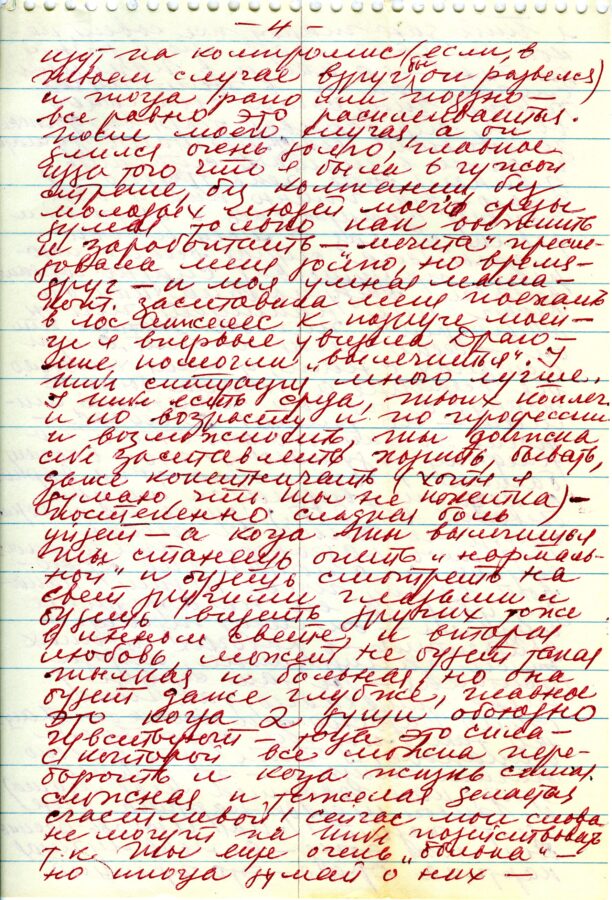 — 4 —
идут на компромис (если, в
твоем случае вдруг бы он развелся)
и тогда рано или поздно —
все равно это расклеивается.
После моего случая, а он
длился очень долго, главное
из за того что я была в чужой
стране, без компании, без
молодых людей моей среды
думая только как выжить
и заработать — мечта" пресле-
довала меня долго, но время-
друг — и моя умная мама-
заставила меня поехать
в Лос Анжелес к подруге моей —
где я впервые увидела Драго-
мне помогли „вылечиться". У
тебя ситуация много лучше..
У тебя есть среда, твоих коллег.
и по возрасту и по профессии
и возможность, ты должна
себя заставлять ходить, бывать,
даже кокетничать (хотя я
думаю что ты не кокетка) —
постепенно сладкая боль
уйдет — а когда ты вылечишься
ты станешь опять „нормаль-
ной" и будешь смотреть на
свет другими глазами и
будешь видеть других тоже
в ином свете, и вторая
любовь, может не будет такая
пылкая и больная, но она
будет даже глубже, главное
это когда 2 души обоюдно
чувствуют — тогда это сила —
с которой все можно пере-
бороть и когда жизнь самая
сложная и тяжелая делается
счастливой. Сейчас мои слова
не могут на тебя подействовать
т.к. ты еще очень „больна" —
но иногда думай о них —